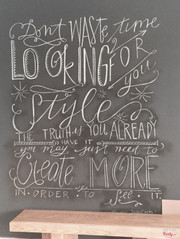 Don't WASTE time
LOOKING FOR
your
Style
THE TRUTH IS YOU ALREADY
HAVE IT
you may just need to
Create MORE
IN ORDER TO See IT.